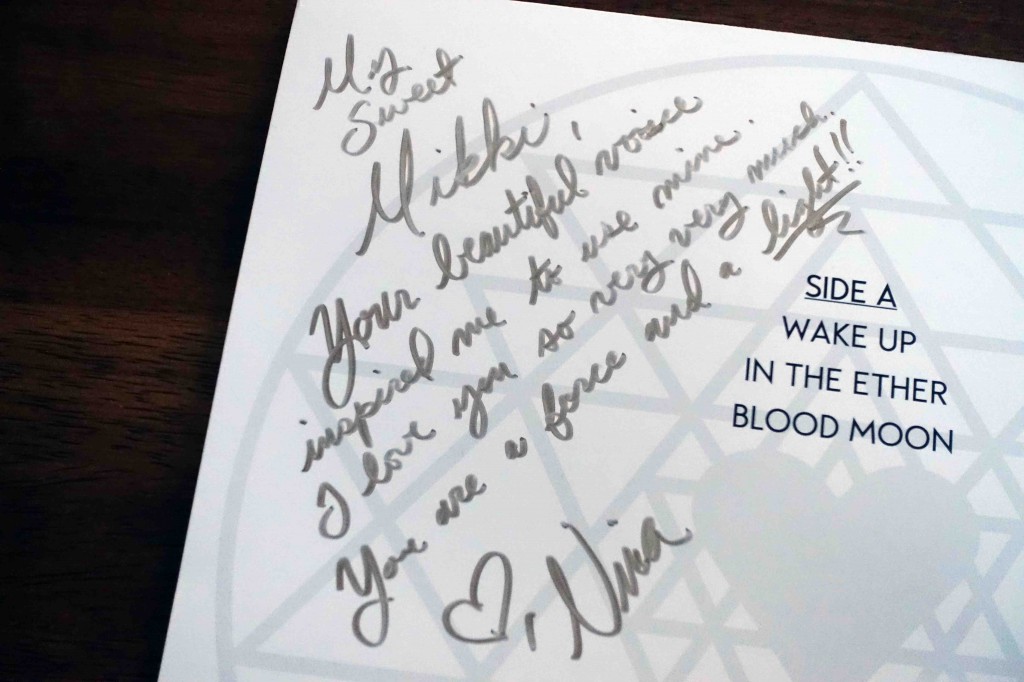 My
Sweet
Mikki,
Your beautiful voice
inspired me to use mine.
I love you so very very much.
You are a force and a light!!
♡, Nina
SIDE A
WAKE UP
IN THE ETHER
BLOOD MOON